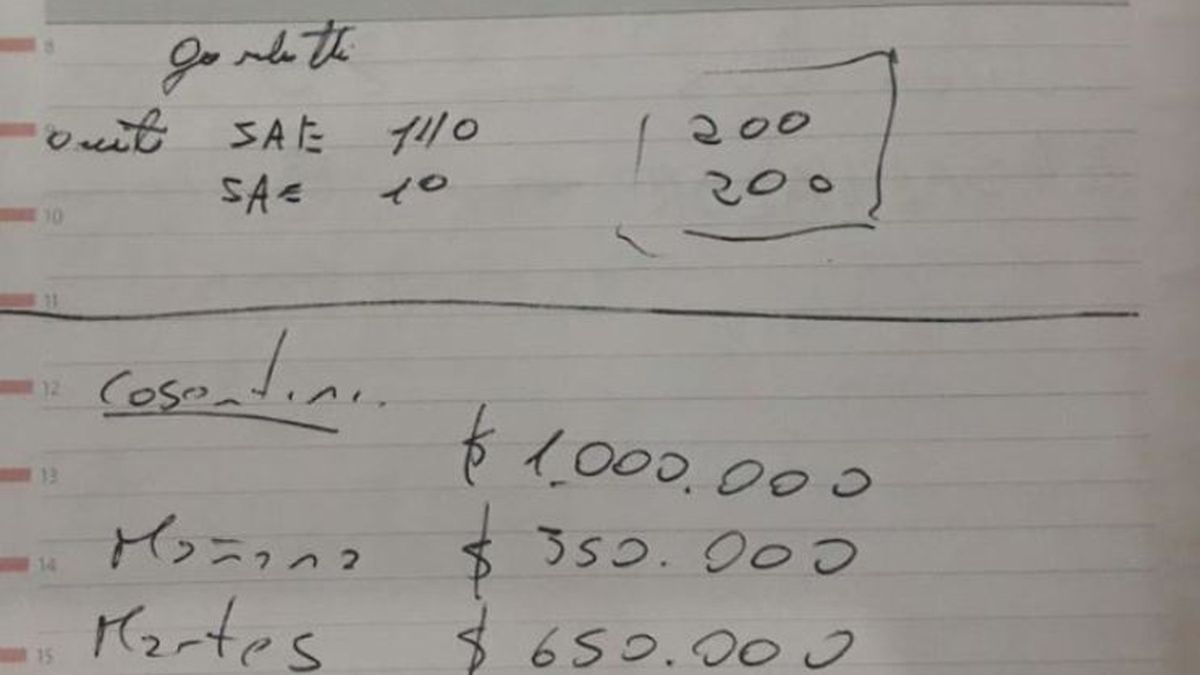 8
9 SAE 1110 200
SAE 10 200
10
11
12 Cosantini.
13 $ 1.000.000
14 Mañana $ 350.000
15 Martes $ 650.000